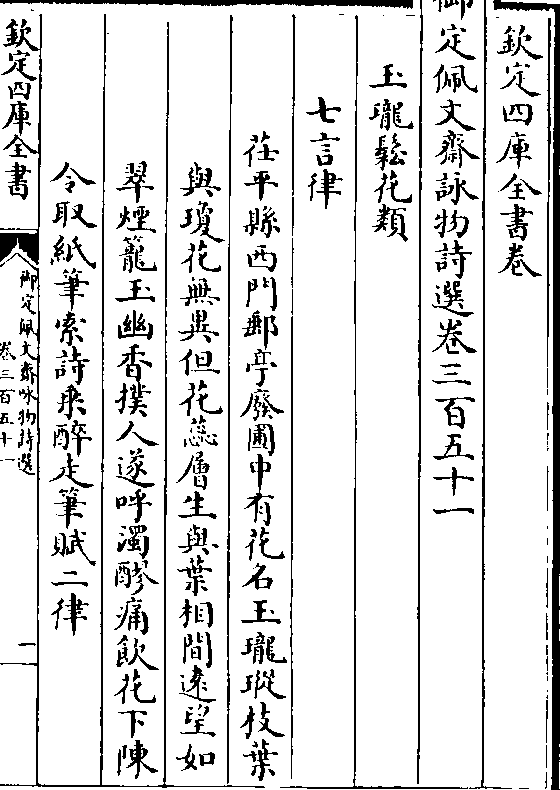 欽定四庫全書卷
御定佩文齋詠物詩選卷三百五十一
玉瓏鬆花類
七言律
茌平縣西門郵亭廢圃中有花名玉瓏瑽枝葉
與瓊花無異但花蕊層生與葉相間遠望如
翠煙籠玉幽香撲人遂呼濁醪痛飲花下陳
令取紙筆索詩乗醉走筆賦二律
欽定四庫全書
御定佩文齋咏物詩選
卷三百五十一
一